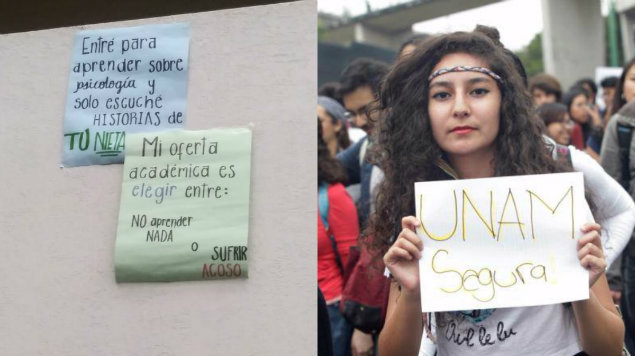 Entré para
aprender sobre
psicología y
solo escuche
HISTORIAS de
TÚ NIETA
Mi oferta
académica es
elegir entre:
NO aprender
NADA
o
SUFRIR
ACOSO
UNAM
Segura!